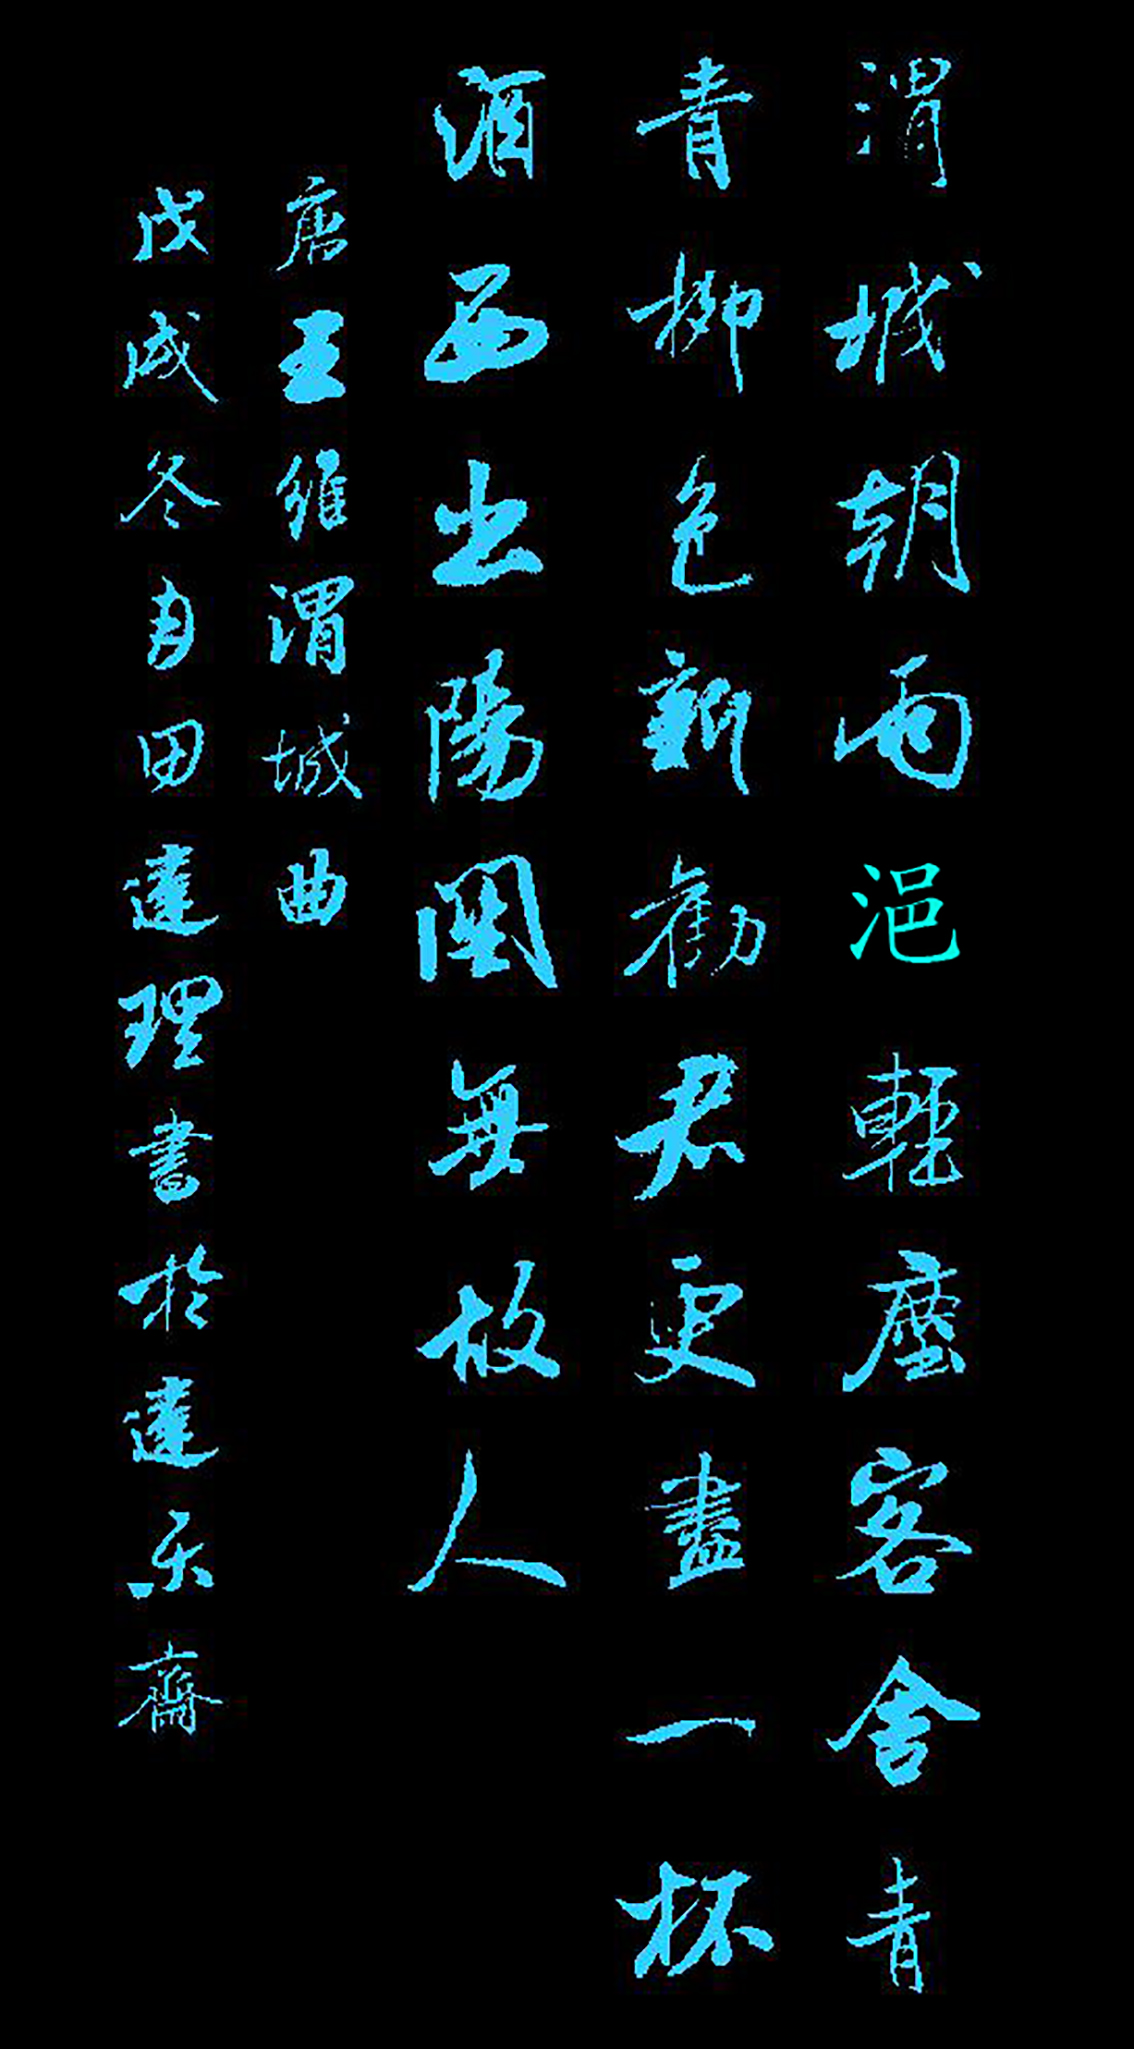 渭城朝雨浥輕塵客舍青
青柳色新勸君更盡一杯
酒西出陽關無故人
唐王維渭城曲
戊戌冬月田達理書於達樂齋